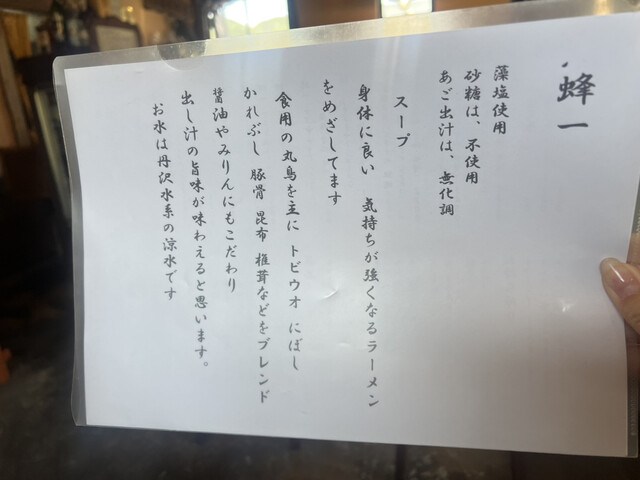 蜂一
藻塩使用
砂糖は、不使用
あご出汁は、無化調
スープ
身体に良い 気持ちが強くなるラーメン
をめざしてます
食用の丸鳥を主に トビウオ にぼし
かれぶし 豚骨 昆布 椎茸などをブレンド
醤油やみりんにもこだわり
出し汁の旨味が味わえると思います。
お水は丹沢水系の涼水です